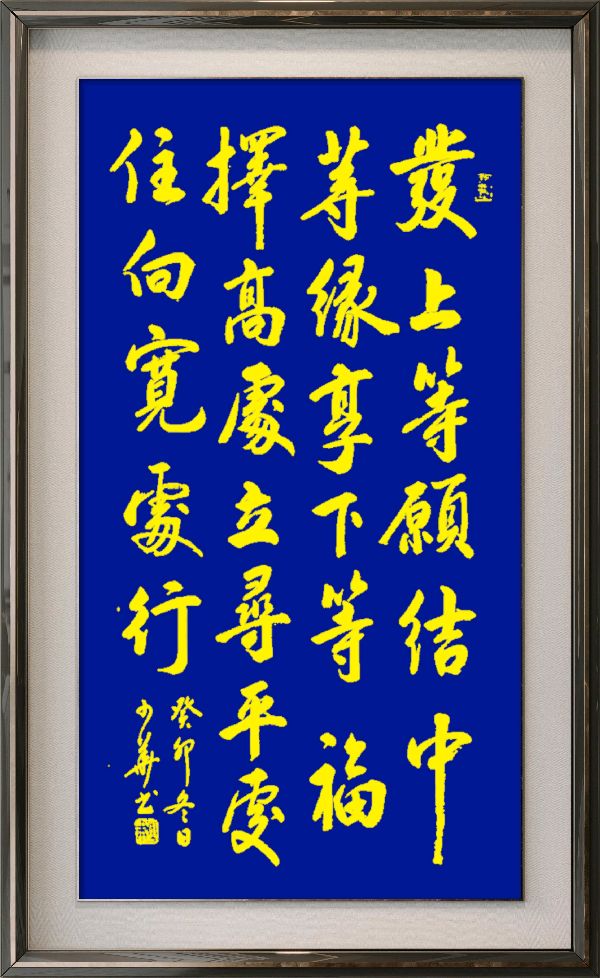 發上等願結中
等緣享下等福
擇高處立尋平處
住向寬處行
癸卯冬日
少華書